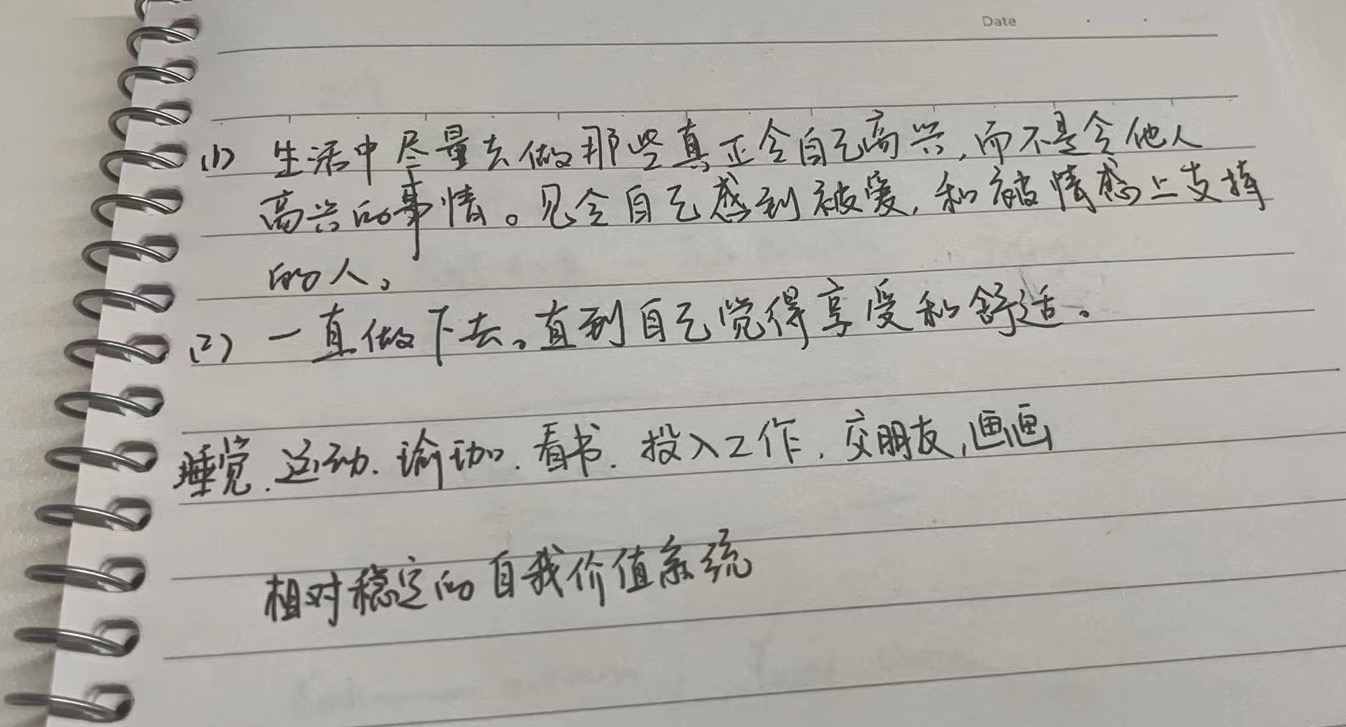 Date
(1) 生活中尽量去做那些真正令自己高兴,而不是令他人
高兴的事情。见令自己感到被爱,和被情感上支持
的人。
(2) 一直做下去。直到自己觉得享受和舒适。
睡觉.运动.瑜珈.看书.投入工作.交朋友,画画
相对稳定的自我价值系统